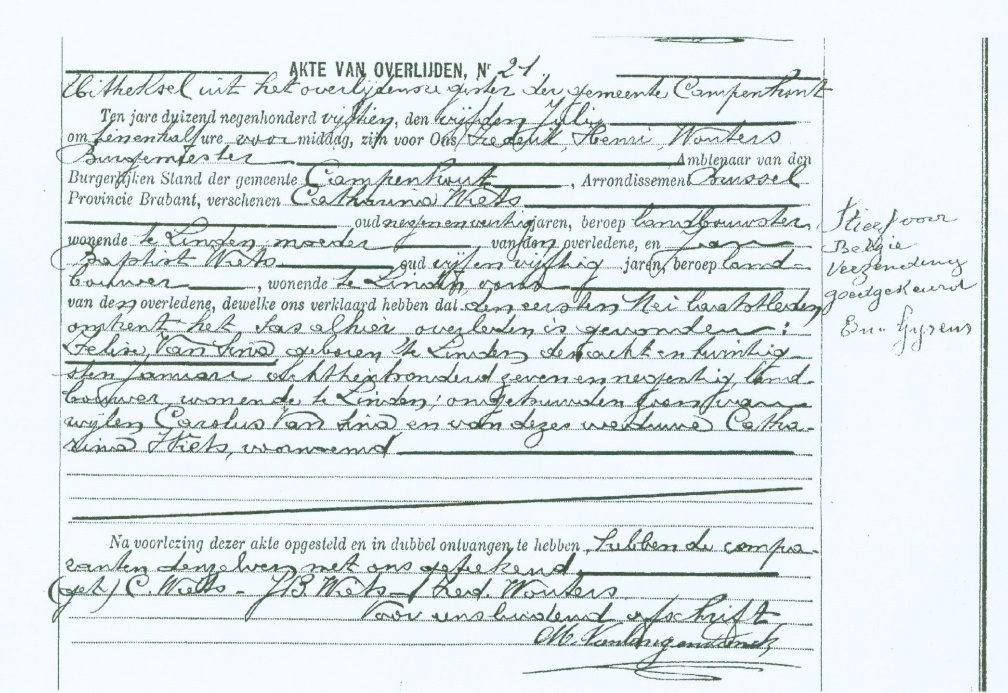 AKTE VAN OVERLIJDEN, Nr 21
Uittreksel uit het overlijdensregister der gemeente Campenhout
Ten jare duizend negenhonderd vijftien, den vijfden Juli
om tienenhalf ure voor middag, zijn voor Ons Frederik Henri Wouters
Burgemeester Ambtenaar van den
Burgerlijken Stand der gemeente Campenhout, Arrondissement Brussel
Provincie Brabant, verschenen Catharina Wiets
oud negenenveertig jaren, beroep landbouwster
wonende te Linden, moeder van den overledene, en Jan
Baptist Wiets oud vijfenvijftig jaren, beroep land-
bouwer, wonende te Linden,
van den overledene, dewelke ons verklaard hebben dat den eersten Mei laatstleden
omtrent het Sas alhier overleden is gevonden:
Felix Van Sina geboren te Linden den acht en twintig-
sten Januari achttienhonderd zevenennegentig, land-
bouwer, wonende te Linden; ongetrouwden zoon van
wijlen Carolus Van Sina en van dezes weduwe Catha-
rina Wiets, voornoemd
Na voorlezing dezer akte opgesteld en in dubbel ontvangen te hebben, hebben de compa-
ranten dezelve met ons geteekend
(get) C. Wiets - J B Wiets - Fred. Wouters
Voor eensluidend afschrift
M. Vanlangendonck
Stierf voor
Belgie
Verzending
goedgekeurd